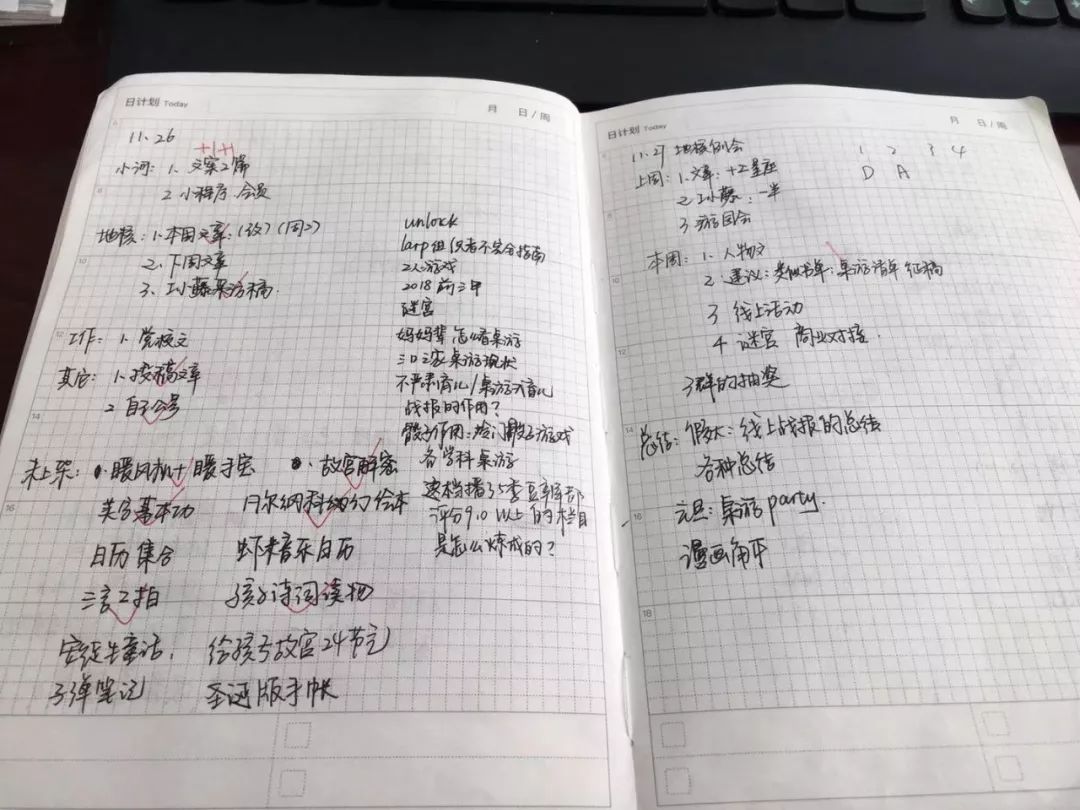 日计划 Today
月 日/周
11.26
小河: 1. 文案2篇
2 小程序 会员
地核: 1.本周文章: (改) (周2)
2. 下周文章
3. 稿
unlock
larp组织者不完全指南
2人游戏
2018 前三甲
谜宫
工作: 1. 党校文
妈妈辈怎么看桌游
三口之家桌游现状
其它: 1. 投稿文章
不严肃育儿/桌游式育儿
2
战报的作用?
骰子作用: 冷门骰子游戏
未上架: 暖风机+暖手宝 故宫解密
各学科桌游
美官基本功 月尔纳科幻绘本
这档播了5季豆瓣
评分9.0以上的节目
日历集合 虾米音乐日历
是怎么炼成的?
三言二拍 孩子诗词读物
安徒生童话. 给孩子故宫24节气
子弹笔记 圣诞版手帐
6
8
10
12
14
16
日计划 Today
月 日/周
11.27 地核例会 1 2 3 4
上周: 1.文章: 十二星座 D A
2 一半
3 游园会
本周: 1. 人物文
2 建议: 类似书单: 桌游清单 征稿
3 线上活动
4 谜宫 商业对接.
3群的抽奖
总结: 线上战报的总结
各种总结
元旦: 桌游party.
漫画
8
10
12
14
16
18